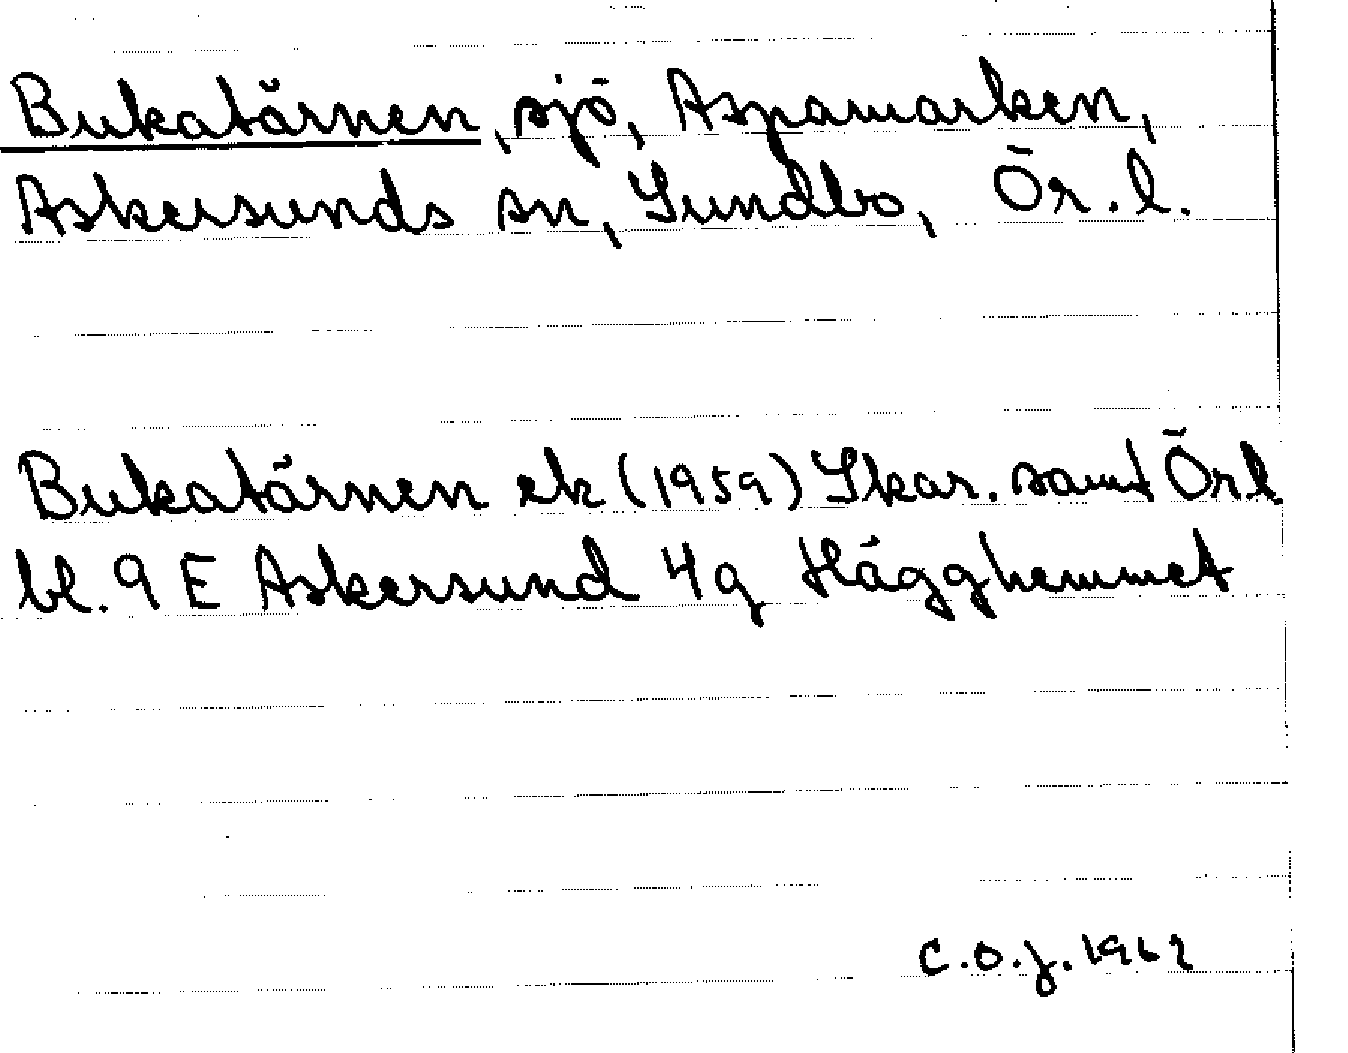 Bukatärnen, sjö, Aspamarken,
Askersunds sn, Sundbo, Ör. l.
Bukatärnen ek (1959) Skar. samt Örl
bl. 9 E Askersund 4g Hägghemmet
C.O.J. 1962